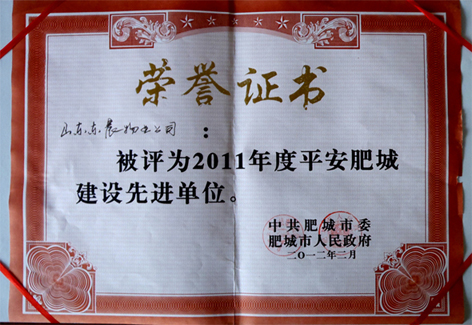 荣誉证书
山东东晨物业公司：
被评为2011年度平安肥城
建设先进单位。
中共肥城市委
肥城市人民政府
二〇一二年二月